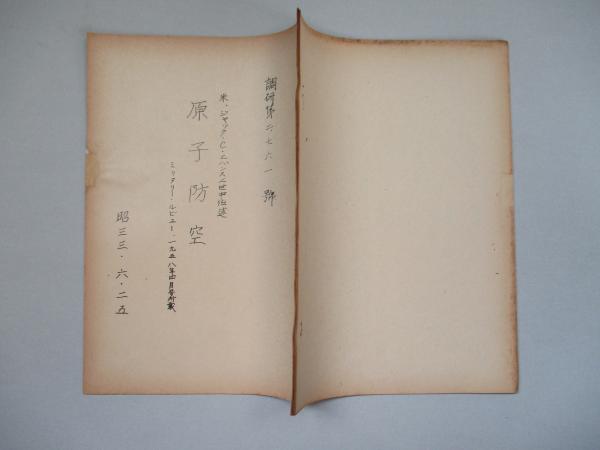 調研第二七六一號
米、ジャック・C・エバンス二世中佐述
原子防空
ミリタリー・レビュー、一九五八年四月号所載
昭三三・六・二五